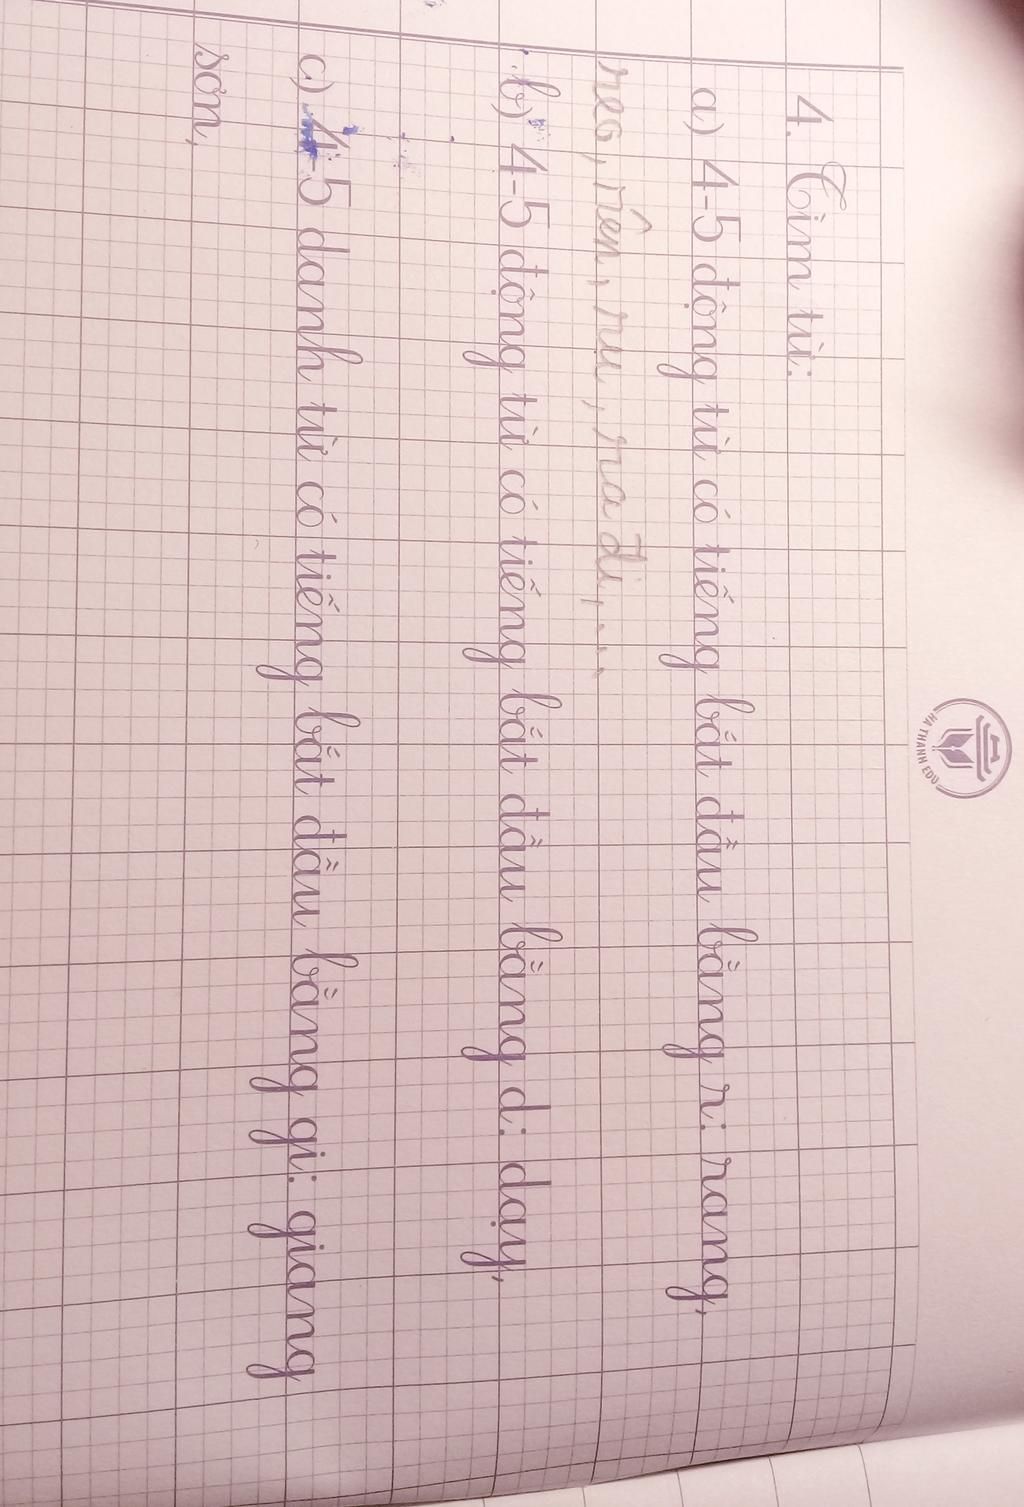 HA THANH EDU
4. Tìm từ:
a) 4-5 động từ có tiếng bắt đầu bằng r: rang,
reo, rên, ru, ra đi, ...
b) 4-5 động từ có tiếng bắt đầu bằng d: dạy,
c) 4-5 danh từ có tiếng bắt đầu bằng gi: giang
sơn,